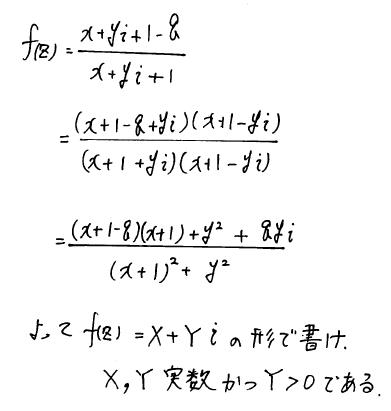 f(z) = (x+yi+1-q)/(x+yi+1)
= ((x+1-q+yi)(x+1-yi))/((x+1+yi)(x+1-yi))
= ((x+1-q)(x+1)+y²+qyi)/((x+1)²+y²)
よって f(z)=X+Yiの形で書け.
X,Y実数かつY>0である.